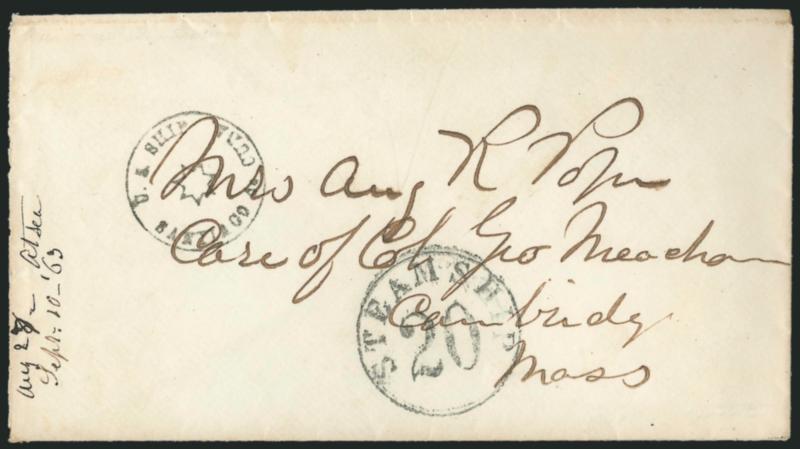 U.S. SHIP SANTIAGO DE CUBA
Mrs Aug R Pope
Care of Col Geo Meacham
Cambridge
Mass
STEAM SHIP
20
Aug 28 - At sea
Sept. 10 - '63